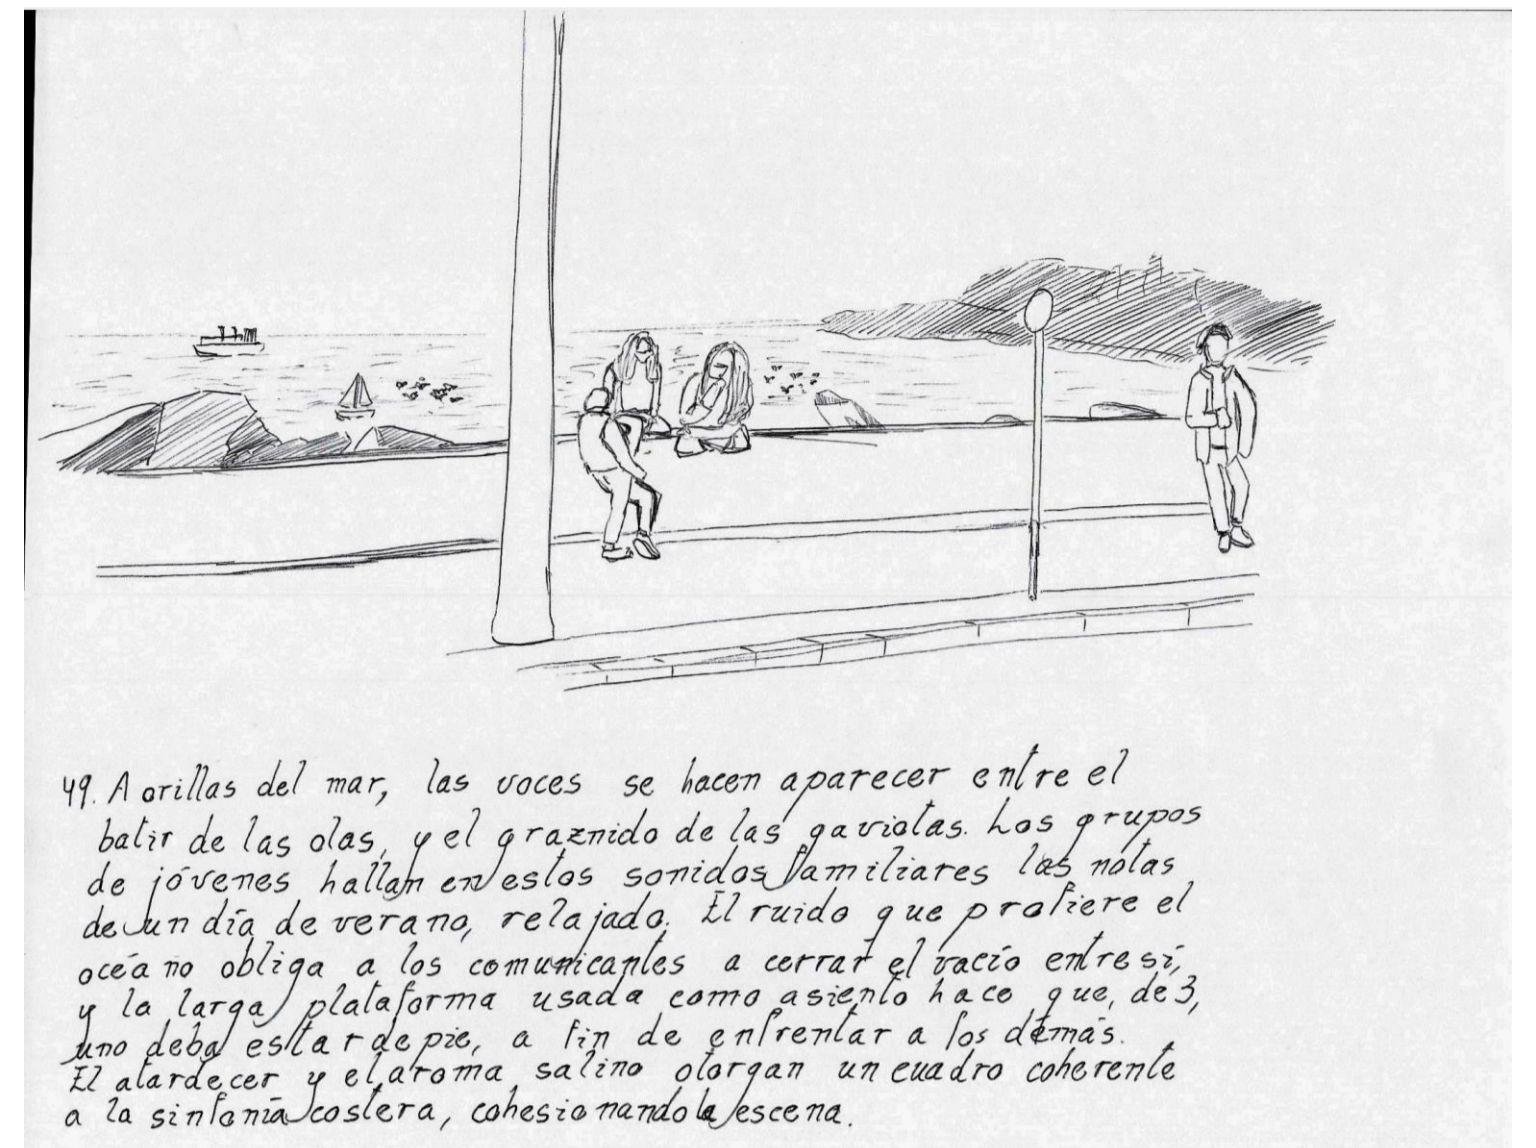 49. A orillas del mar, las voces se hacen aparecer entre el
batir de las olas, y el graznido de las gaviotas. Los grupos
de jóvenes hallan en estos sonidos familiares las notas
de un día de verano, relajado. El ruido que profiere el
océano obliga a los comunicantes a cerrar el vacío entre sí,
y la larga plataforma usada como asiento hace que, de 3,
uno deba estar de pie, a fin de enfrentar a los demás.
El atardecer y el aroma salino otorgan un cuadro coherente
a la sinfonía costera, cohesionando la escena.